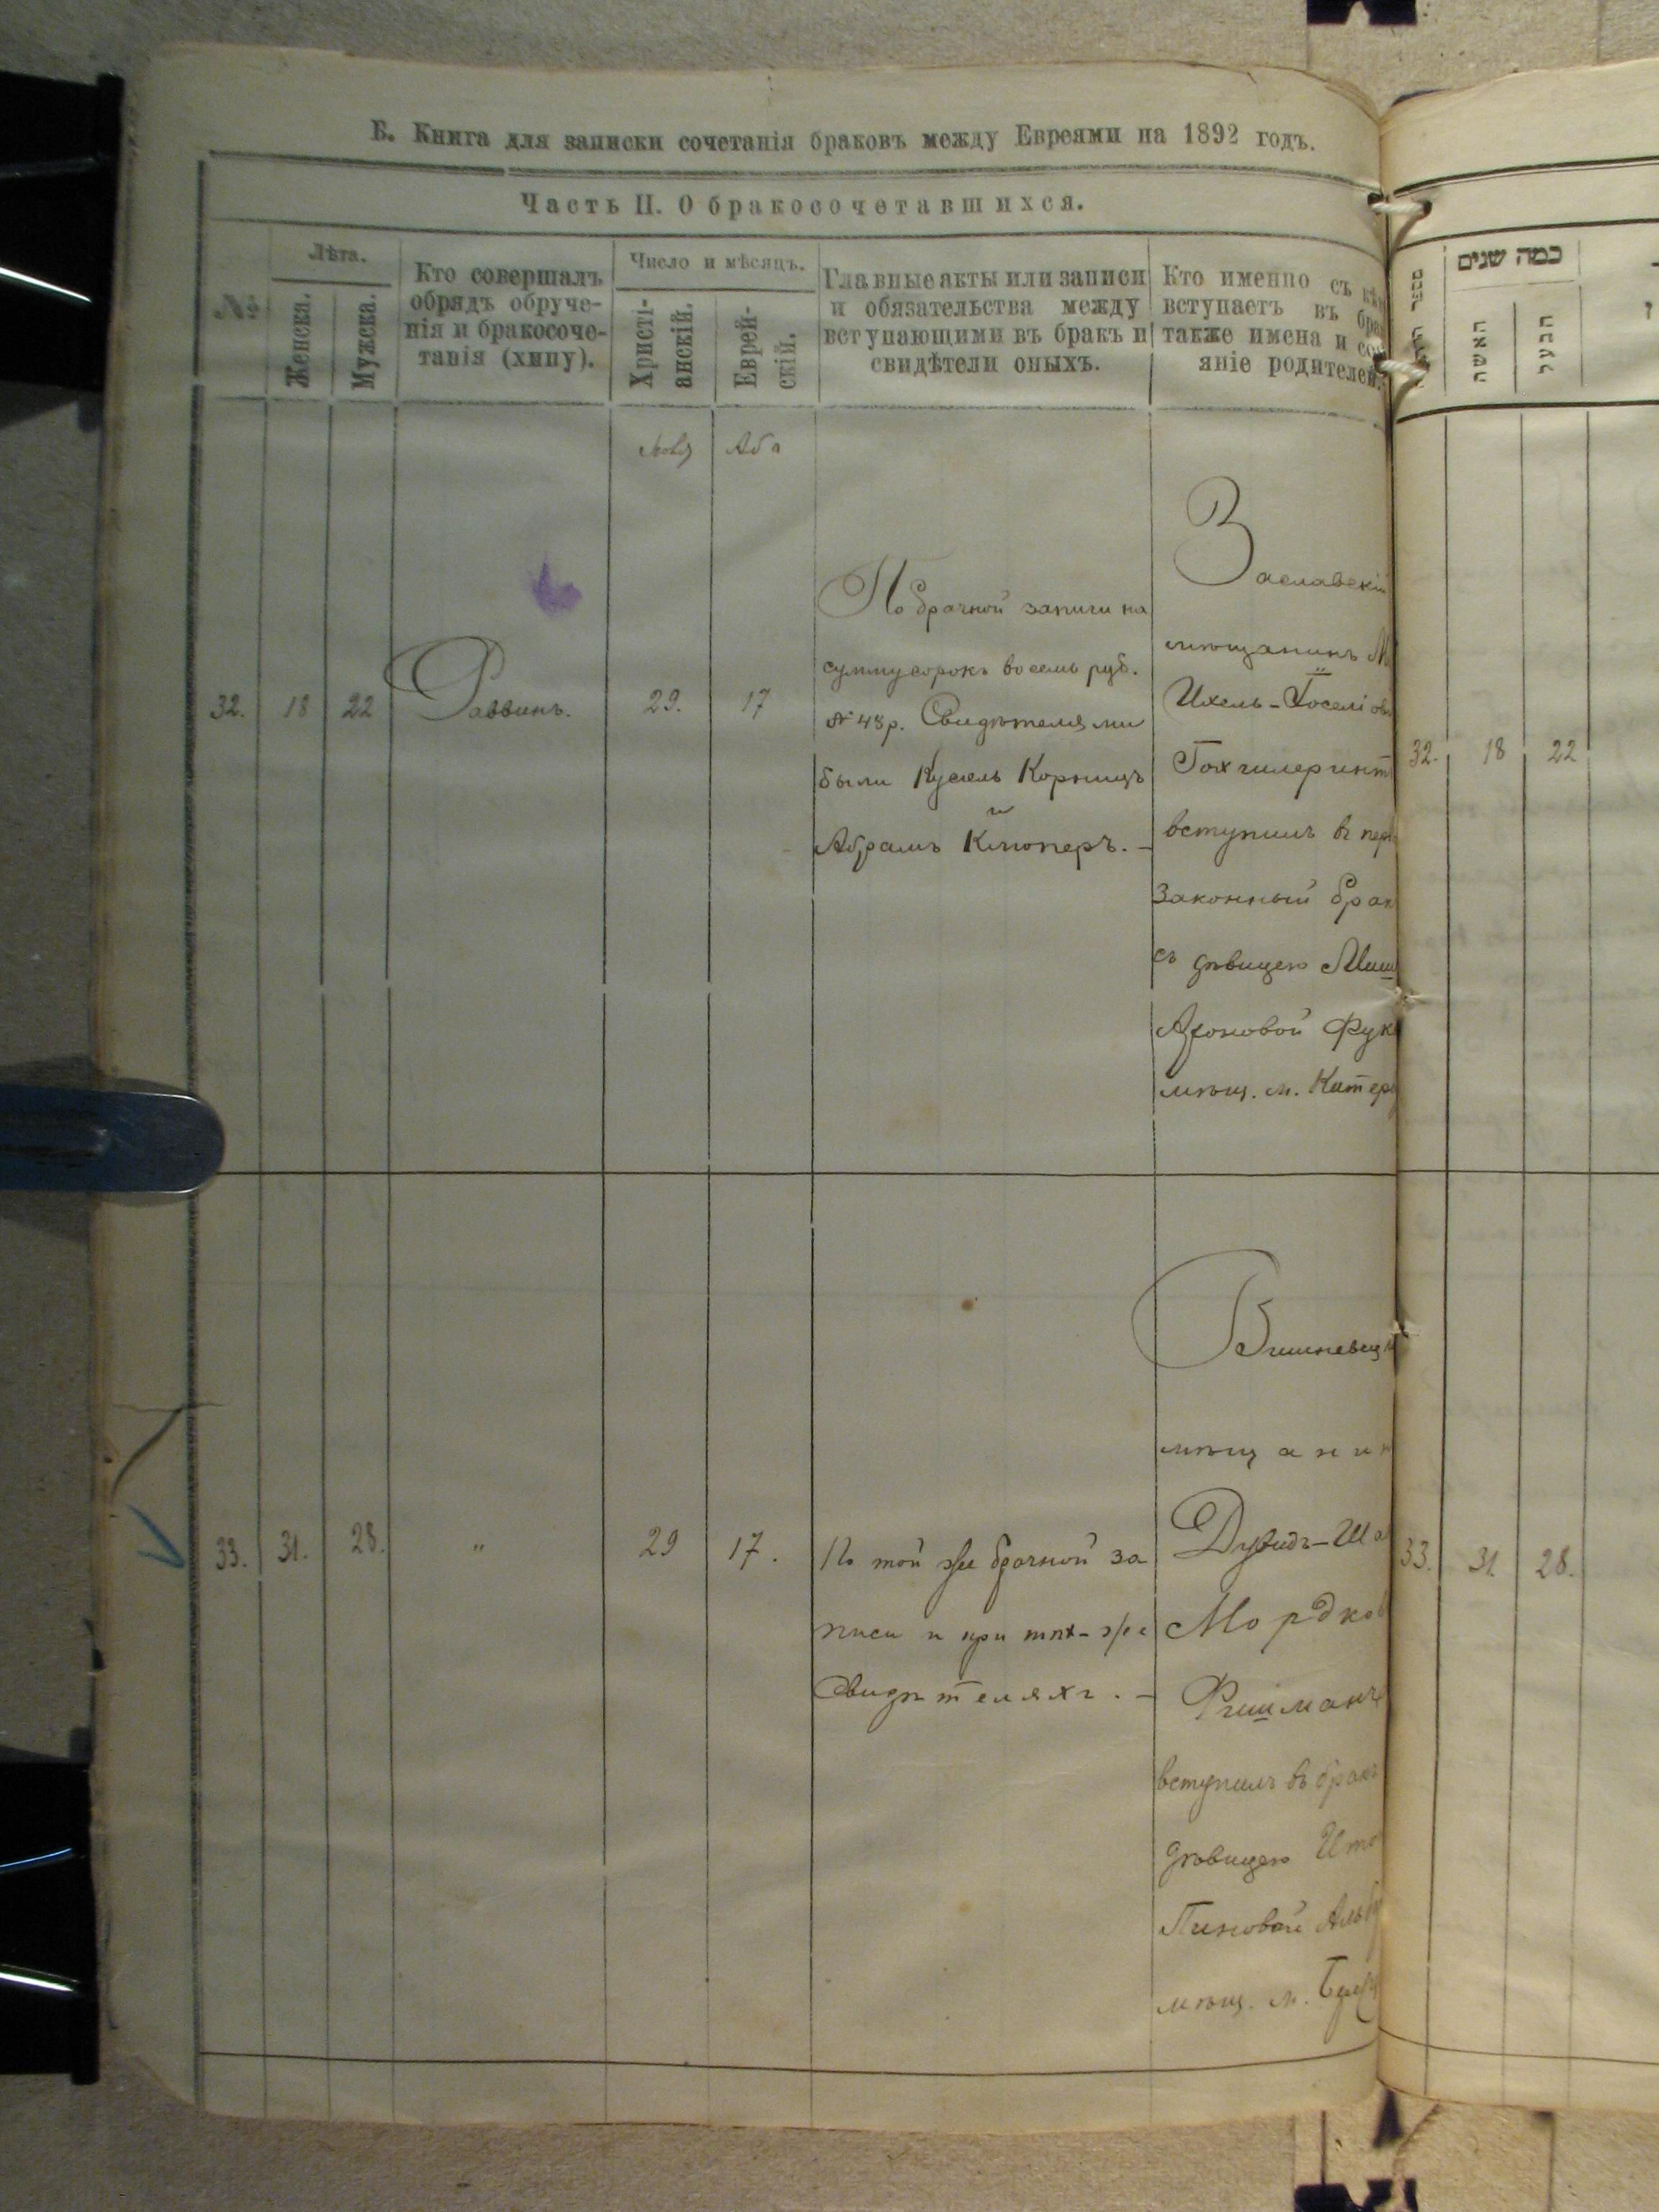 Б. Книга для записки сочетанія браковъ между Евреями на 1892 годъ.
Часть II. О бракосочетавшихся.
№
Лѣта.
Женска.
Мужска.
Кто совершалъ
обрядъ обруче-
нія и бракосоче-
танія (хипу).
Число и мѣсяцъ.
Христі-
анскій.
Еврей-
скій.
Главные акты или записи
и обязательства между
вступающими въ бракъ и
свидѣтели оныхъ.
Кто именно съ
вступаетъ въ
также имена и
яніе родителей.
32. 18 22 Раввинъ. 29. 17
По брачной записи на
сумму сорокъ восемь руб.
48 р. Свидѣтелями
были Кусель Корницъ
и
Абрамъ Клюперъ. –
Заславскій
мѣщанинъ
Ихель-Іосел
вступилъ в
законный брак
съ дѣвицею
Ароновой Фук
мѣщ. м. Катер
33. 31. 28. " 29 17.
По той же брачной за
писи и при тѣх-же
свидѣтеляхъ. –
Вишневец
мѣщанин
Дувидъ-Ша
Мордков
Фишманъ
вступилъ въ бракъ
дѣвицею
Пиновой Аль
мѣщ. м.
כמה שנים
האשה
הבעל
32. 18 22
33. 31. 28.